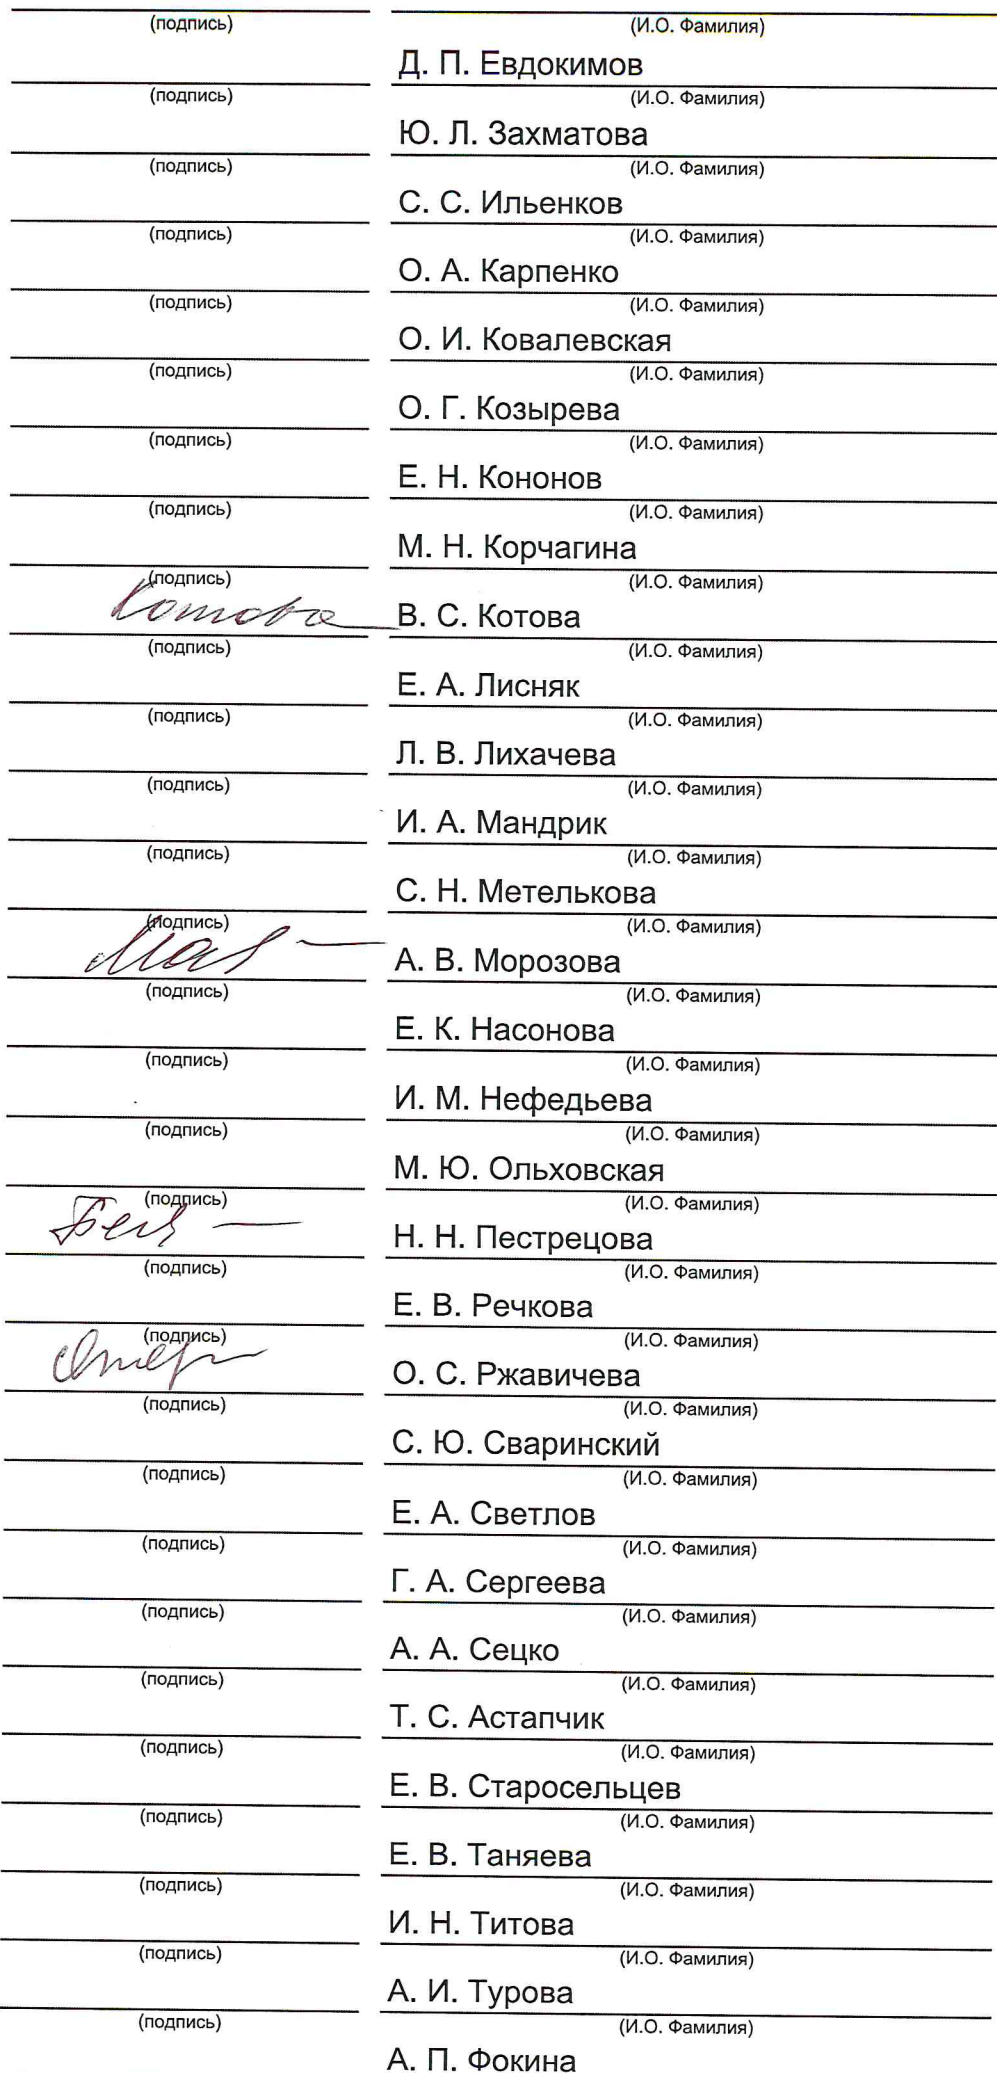 (подпись) (И.О. Фамилия)
Д. П. Евдокимов
(подпись) (И.О. Фамилия)
Ю. Л. Захматова
(подпись) (И.О. Фамилия)
С. С. Ильенков
(подпись) (И.О. Фамилия)
О. А. Карпенко
(подпись) (И.О. Фамилия)
О. И. Ковалевская
(подпись) (И.О. Фамилия)
О. Г. Козырева
(подпись) (И.О. Фамилия)
Е. Н. Кононов
(подпись) (И.О. Фамилия)
М. Н. Корчагина
(подпись) (И.О. Фамилия)
Котова В. С. Котова
(подпись) (И.О. Фамилия)
Е. А. Лисняк
(подпись) (И.О. Фамилия)
Л. В. Лихачева
(подпись) (И.О. Фамилия)
И. А. Мандрик
(подпись) (И.О. Фамилия)
С. Н. Метелькова
(подпись) (И.О. Фамилия)
А. В. Морозова
(подпись) (И.О. Фамилия)
Е. К. Насонова
(подпись) (И.О. Фамилия)
И. М. Нефедьева
(подпись) (И.О. Фамилия)
М. Ю. Ольховская
(подпись) (И.О. Фамилия)
Н. Н. Пестрецова
(подпись) (И.О. Фамилия)
Е. В. Речкова
(подпись) (И.О. Фамилия)
О. С. Ржавичева
(подпись) (И.О. Фамилия)
С. Ю. Сваринский
(подпись) (И.О. Фамилия)
Е. А. Светлов
(подпись) (И.О. Фамилия)
Г. А. Сергеева
(подпись) (И.О. Фамилия)
А. А. Сецко
(подпись) (И.О. Фамилия)
Т. С. Астапчик
(подпись) (И.О. Фамилия)
Е. В. Старосельцев
(подпись) (И.О. Фамилия)
Е. В. Таняева
(подпись) (И.О. Фамилия)
И. Н. Титова
(подпись) (И.О. Фамилия)
А. И. Турова
(подпись) (И.О. Фамилия)
А. П. Фокина